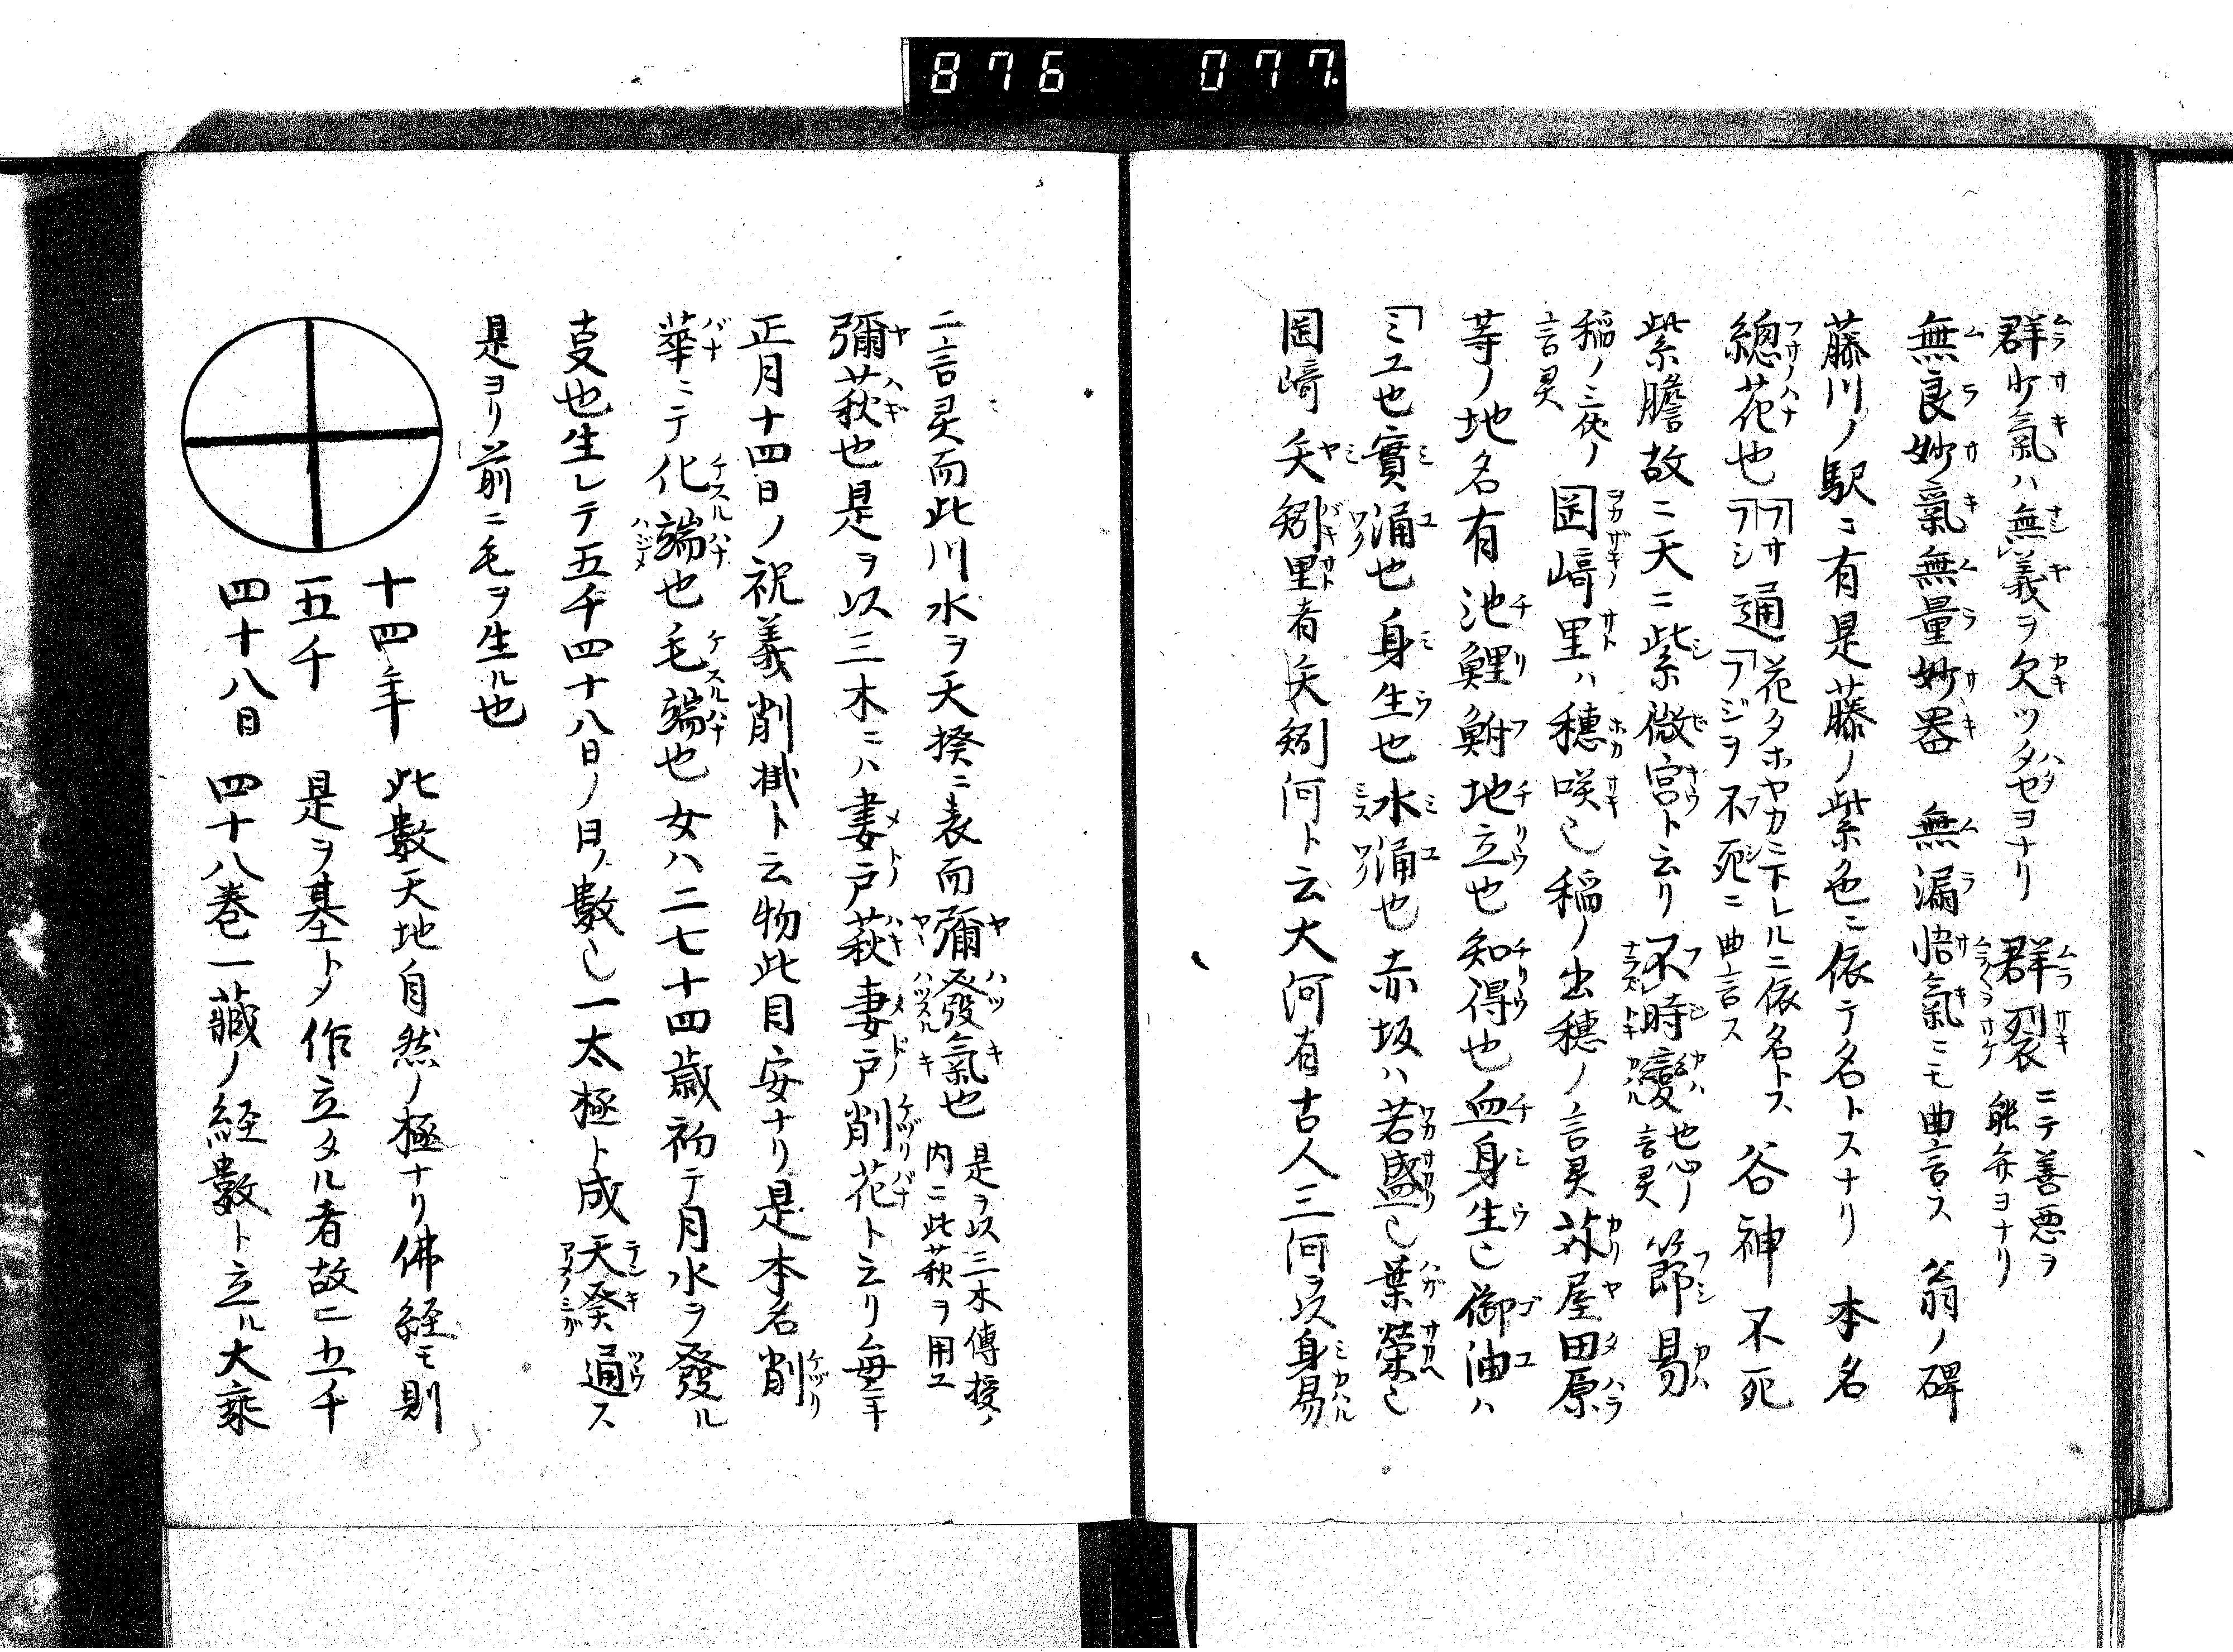 876 077
群少氣ハ無義ヲ欠ツタセヨナリ 群裂ニテ善悪ヲ能弁ヨナリ
無良妙氣無量妙器 無漏悟氣ニモ曲言ス 翁ノ碑
藤川ノ駅ニ有是藤ノ紫色ニ依テ名トスナリ 本名
總花也 フサ フシ 通 花タホヤカニ下レルニ依名トス フジヲ不死ニ曲言ス 谷神不死
紫膽故ニ天ニ紫微宮ト云リ 不時變也心ノ節易 言灵
稲ノ三伏ノ言灵 岡﨑里ハ穂咲也稲ノ出穂ノ言灵 苅屋田原
等ノ地名有池鯉鮒地立也知得也血身生也御油ハ
ミユ也實涌也身生也水涌也赤坂ハ若盛也葉榮也
岡﨑矢矧里者矢矧何ト云大河有古人三何ヲ以身易
ニ言灵而此川水ヲ天揆ニ表而彌發氣也 是ヲ以三木傳授ノ内ニ此萩ヲ用ユ
彌萩也是ヲ以三木ニハ妻戸萩妻戸削花ト云リ毎年
正月十四日ノ祝義削掛ト云物此目安ナリ是本名削
華ニテ化端也毛端也女ハ二七十四歳初テ月水ヲ發ル
叓也生レテ五千四十八日ノ日ノ數也一太極ト成天癸通ス
是ヨリ前ニ毛ヲ生ル也
十四年 此數天地自然ノ極ナリ佛経モ則
五千 是ヲ基トメ作立タル者故ニ五千
四十八日 四十八巻一藏ノ経數ト立ル大乘